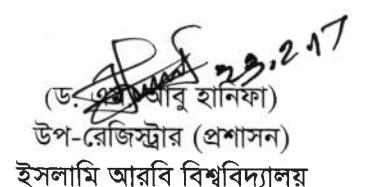 ২১.২.১৭
(ড. আবু হানিফা)
উপ-রেজিস্ট্রার (প্রশাসন)
ইসলামি আরবি বিশ্ববিদ্যালয়